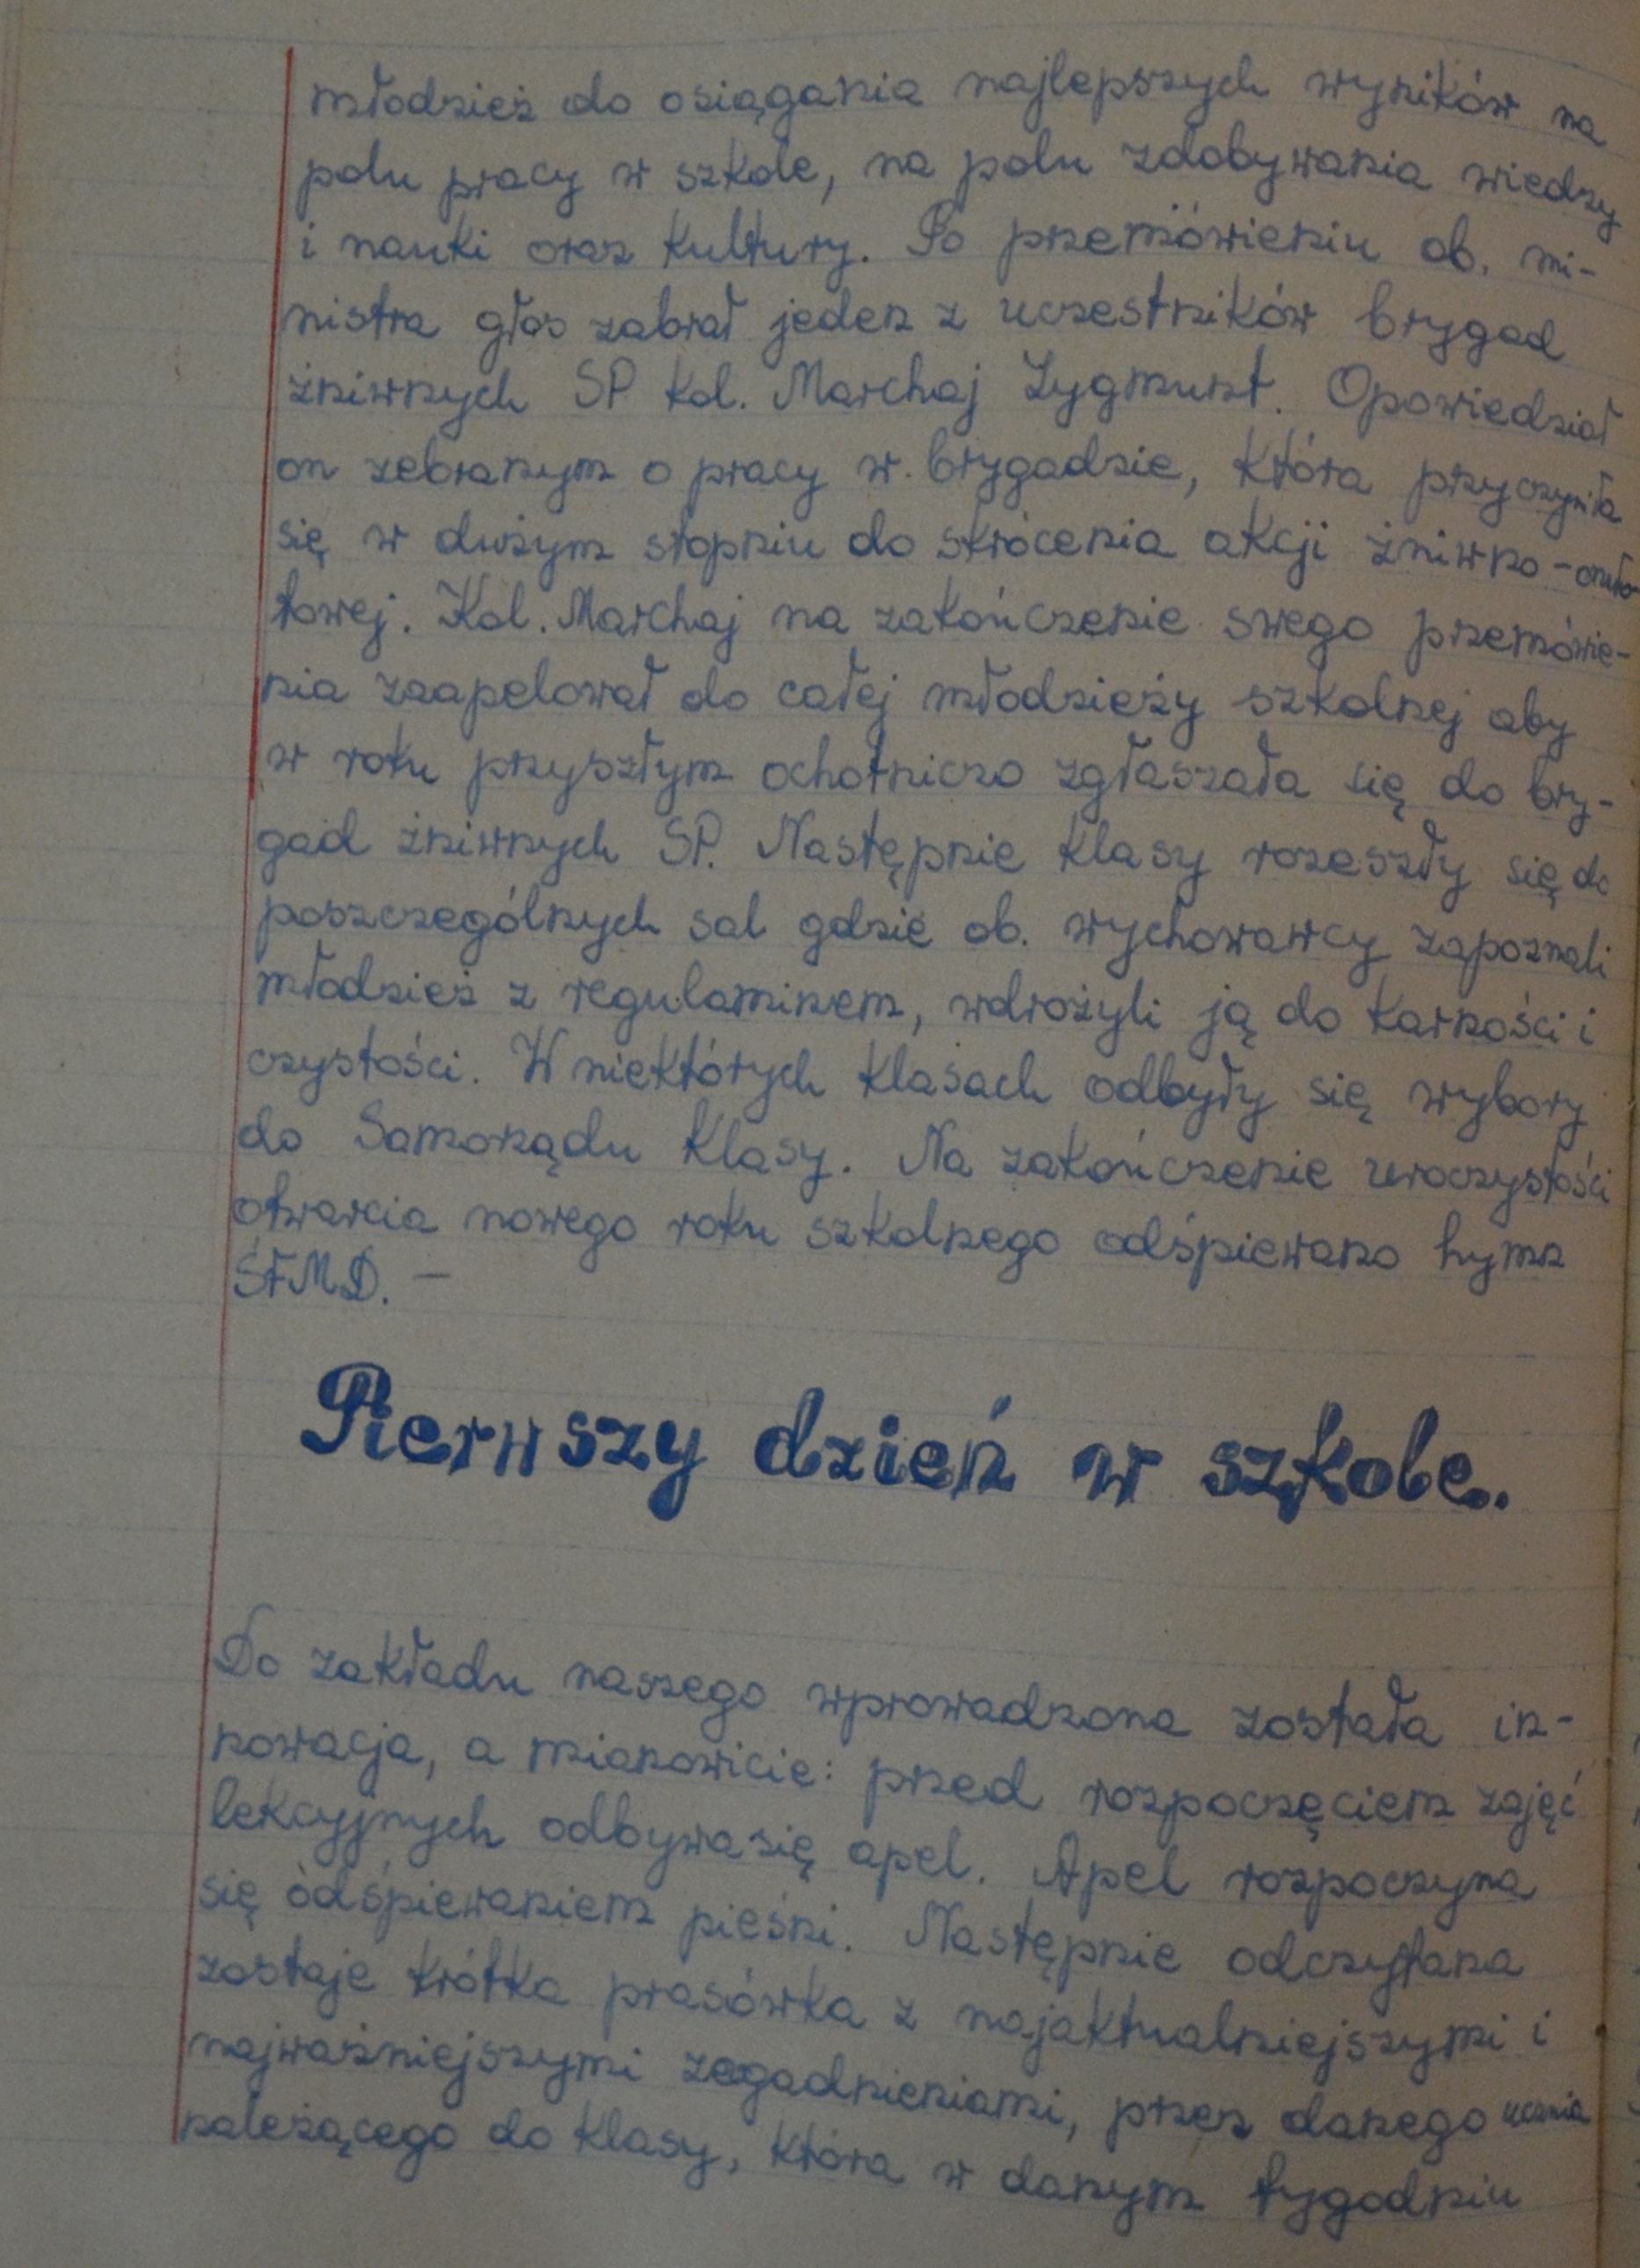 młodzież do osiągania najlepszych wyników na
polu pracy w szkole, na polu zdobywania wiedzy
i nauki oraz kultury. Po przemówieniu ob. mi-
nistra głos zabrał jeden z uczestników brygad
żniwnych SP kol. Marchaj Zygmunt. Opowiedział
on zebranym o pracy w brygadzie, która przyczyniła
się w dużym stopniu do skrócenia akcji żniwno-omło-
towej. Kol. Marchaj na zakończenie swego przemówie-
nia zaapelował do całej młodzieży szkolnej aby
w roku przyszłym ochotniczo zgłaszała się do bry-
gad żniwnych SP. Następnie klasy rozeszły się do
poszczególnych sal gdzie ob. wychowawcy zapoznali
młodzież z regulaminem, wdrożyli ją do karności i
czystości. W niektórych klasach odbyły się wybory
do Samorządu Klasy. Na zakończenie uroczystości
otwarcia nowego roku szkolnego odśpiewano hymn
ŚFMD. —
Pierwszy dzień w szkole.
Do zakładu naszego wprowadzona została in-
nowacja, a mianowicie: przed rozpoczęciem zajęć
lekcyjnych odbywa się apel. Apel rozpoczyna
się odśpiewaniem pieśni. Następnie odczytana
zostaje krótka prasówka z najaktualniejszymi i
najważniejszymi zagadnieniami, przez danego ucznia
należącego do klasy, która w danym tygodniu